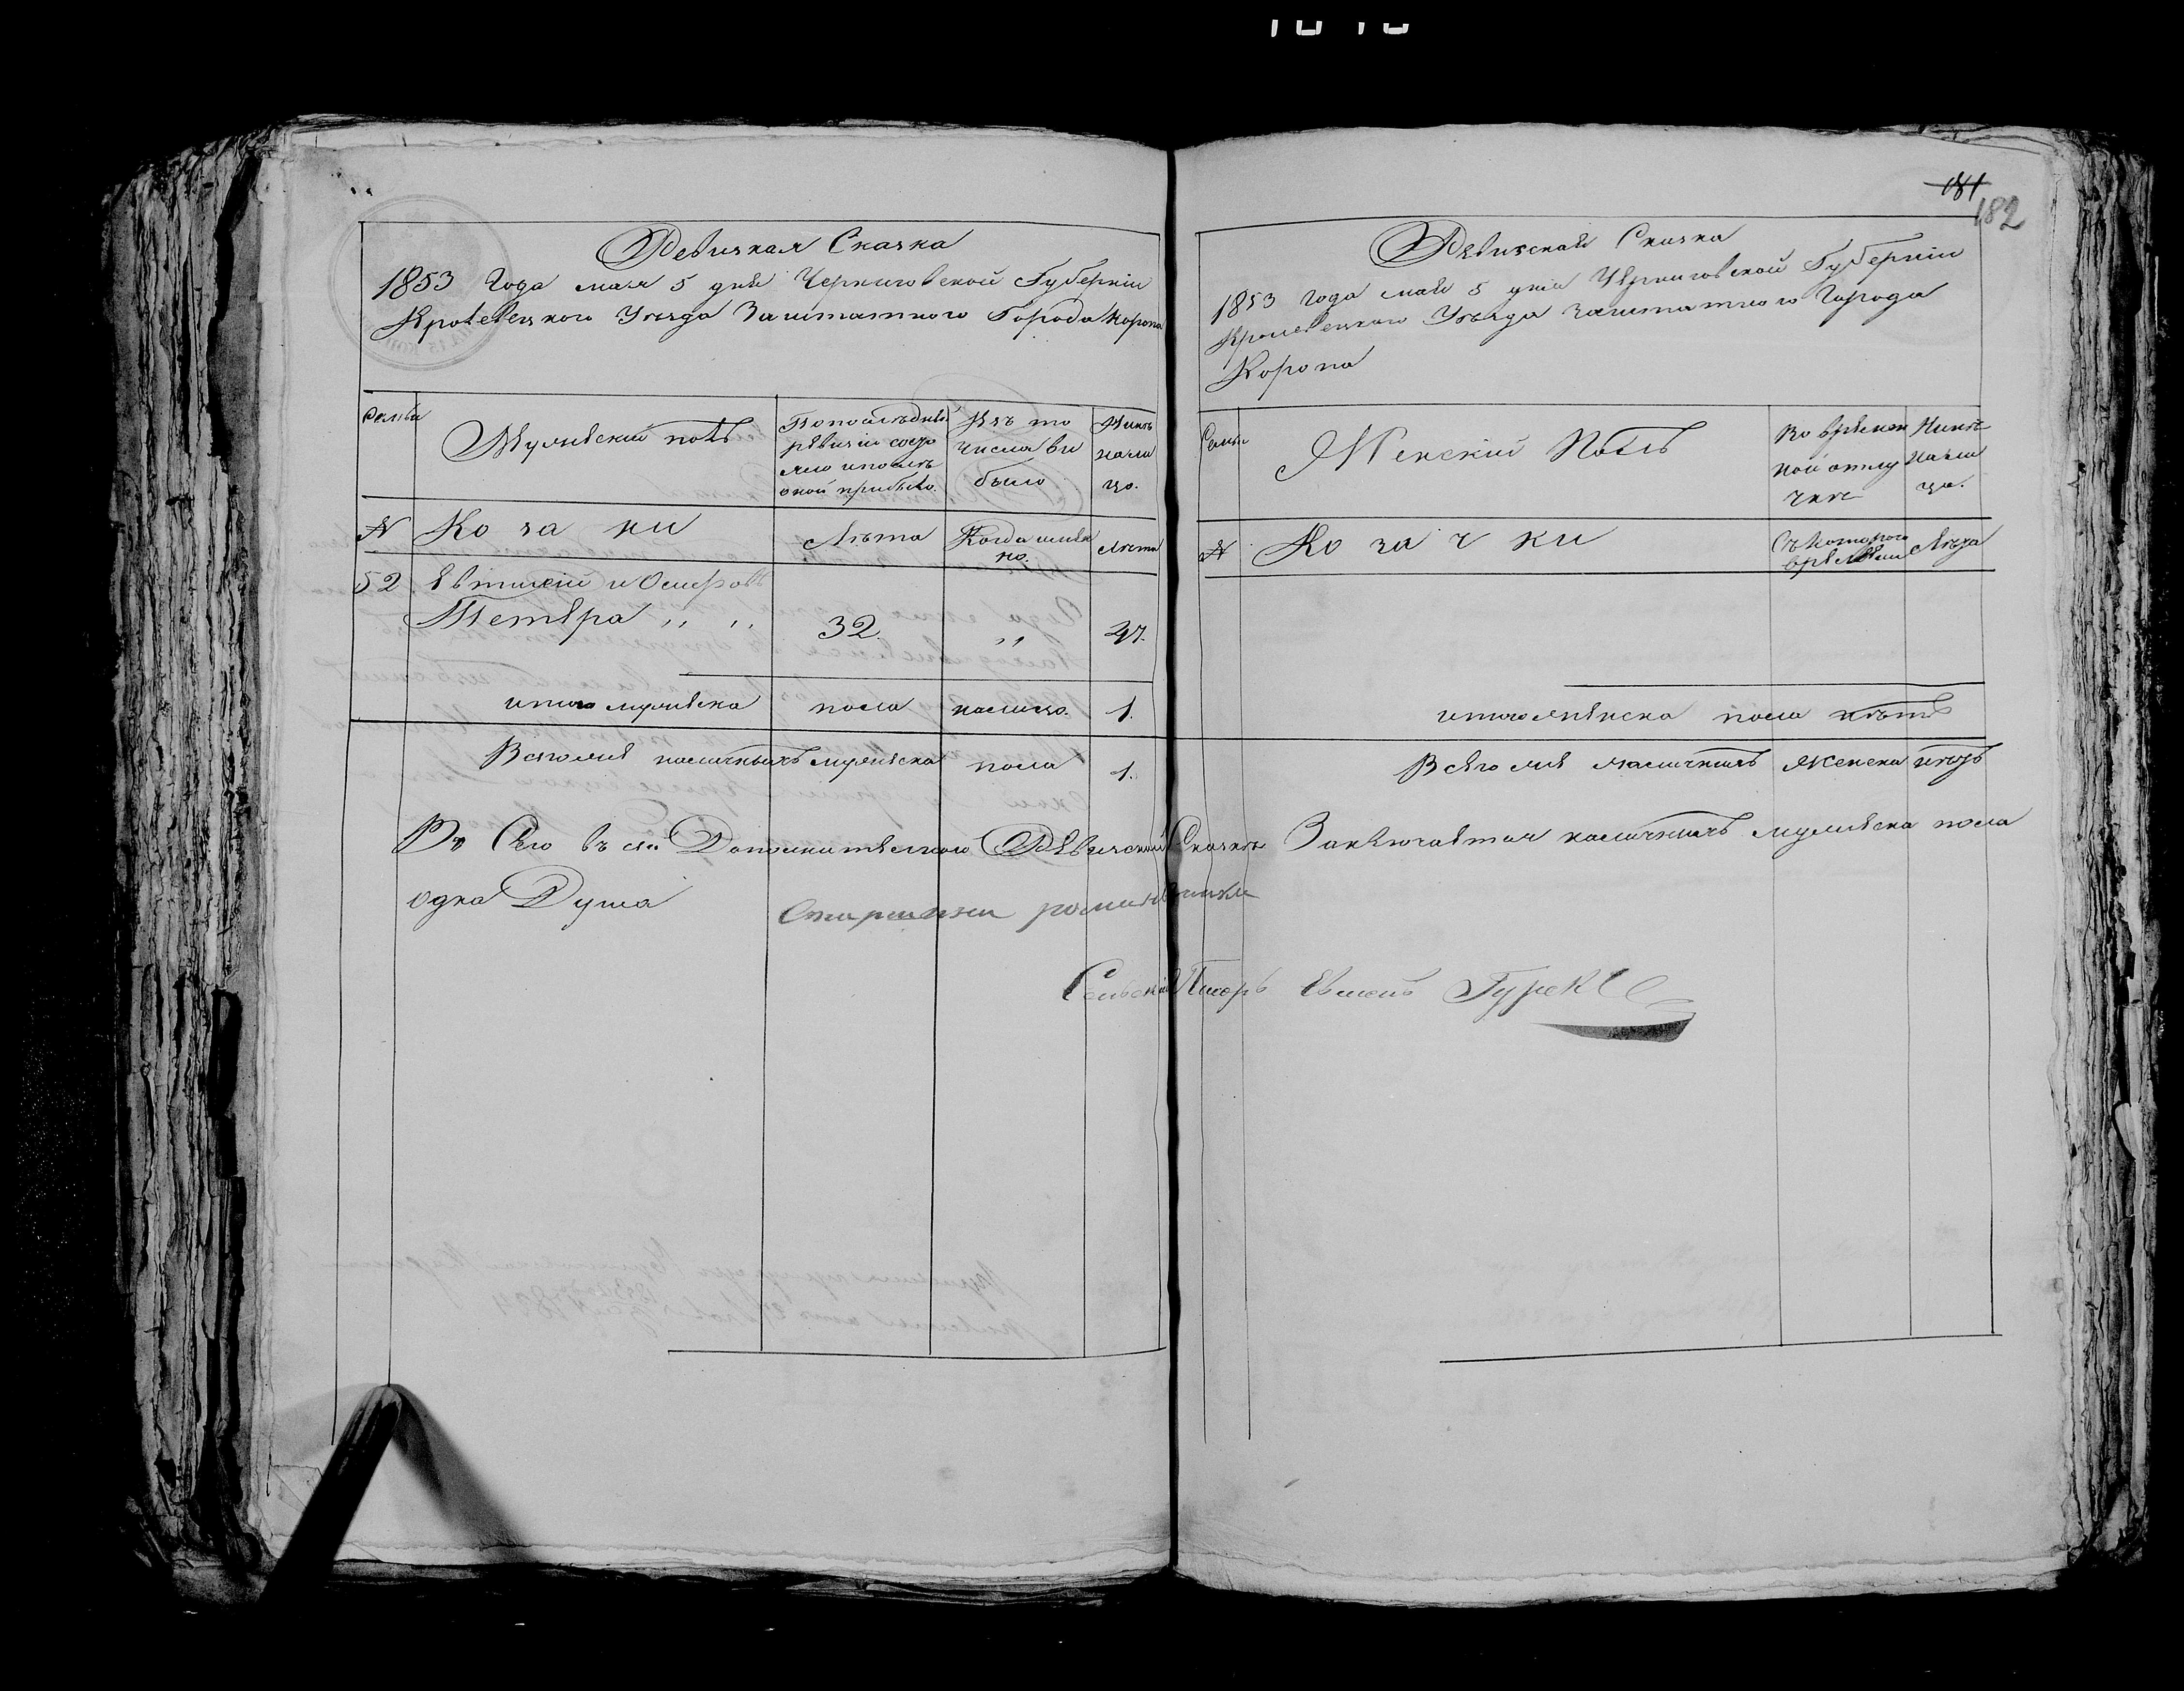 Ревизкая Сказка
1853 Года мая 5 дня Черниговской Губернии
Кролевецкого Уезда Заштатного Города Коропа
Семьи
Мужеский полъ
По последней
ревизии состо
яло и после
оной прибыло.
Изъ то
числа вы
было
Ныне
нали
цо.
№
Ко за ки
Лета
Когда имен
но.
Лета
52
Евтихий Иосифовъ
Тетера „ „
32.
„
47.
итого мужеска пола налицо. 1.
Всего же наличныхъ мужеска пола 1.
181
182
Ревизская Сказка
1853 года мая 5 дня Черниговской Губернии
Кролевецкого Уезда заштатного Города
Коропа
Семьи
Женский Полъ
Во времен
ной отлу
чке
Ныне
нали
цо.
№
Ко за ч ки
Съ которого
времени
Лета
итого женска пола нетъ
Всего же наличныхъ женска нетъ
Сего въ сей Дополнительного Ревизской Сказке Заключается наличныхъ мужеска пола
одна Душа
Сельский Писарь Евмен